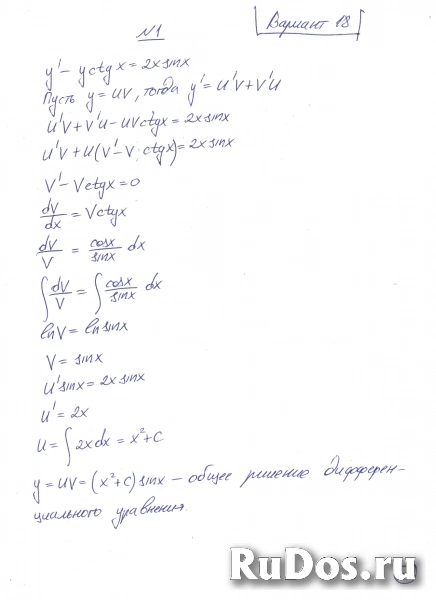 Вариант 18
N1
y' - y ctg x = 2x sin x
Пусть y = uv, тогда y' = u'v + v'u
u'v + v'u - uv ctg x = 2x sin x
u'v + u(v' - v · ctg x) = 2x sin x
v' - v ctg x = 0
dv/dx = v ctg x
dv/v = cos x/sin x dx
∫ dv/v = ∫ cos x/sin x dx
ln v = ln sin x
v = sin x
u' sin x = 2x sin x
u' = 2x
u = ∫ 2x dx = x² + C
y = uv = (x² + C) sin x – общее решение дифферен-
циального уравнения.
RuDos.ru